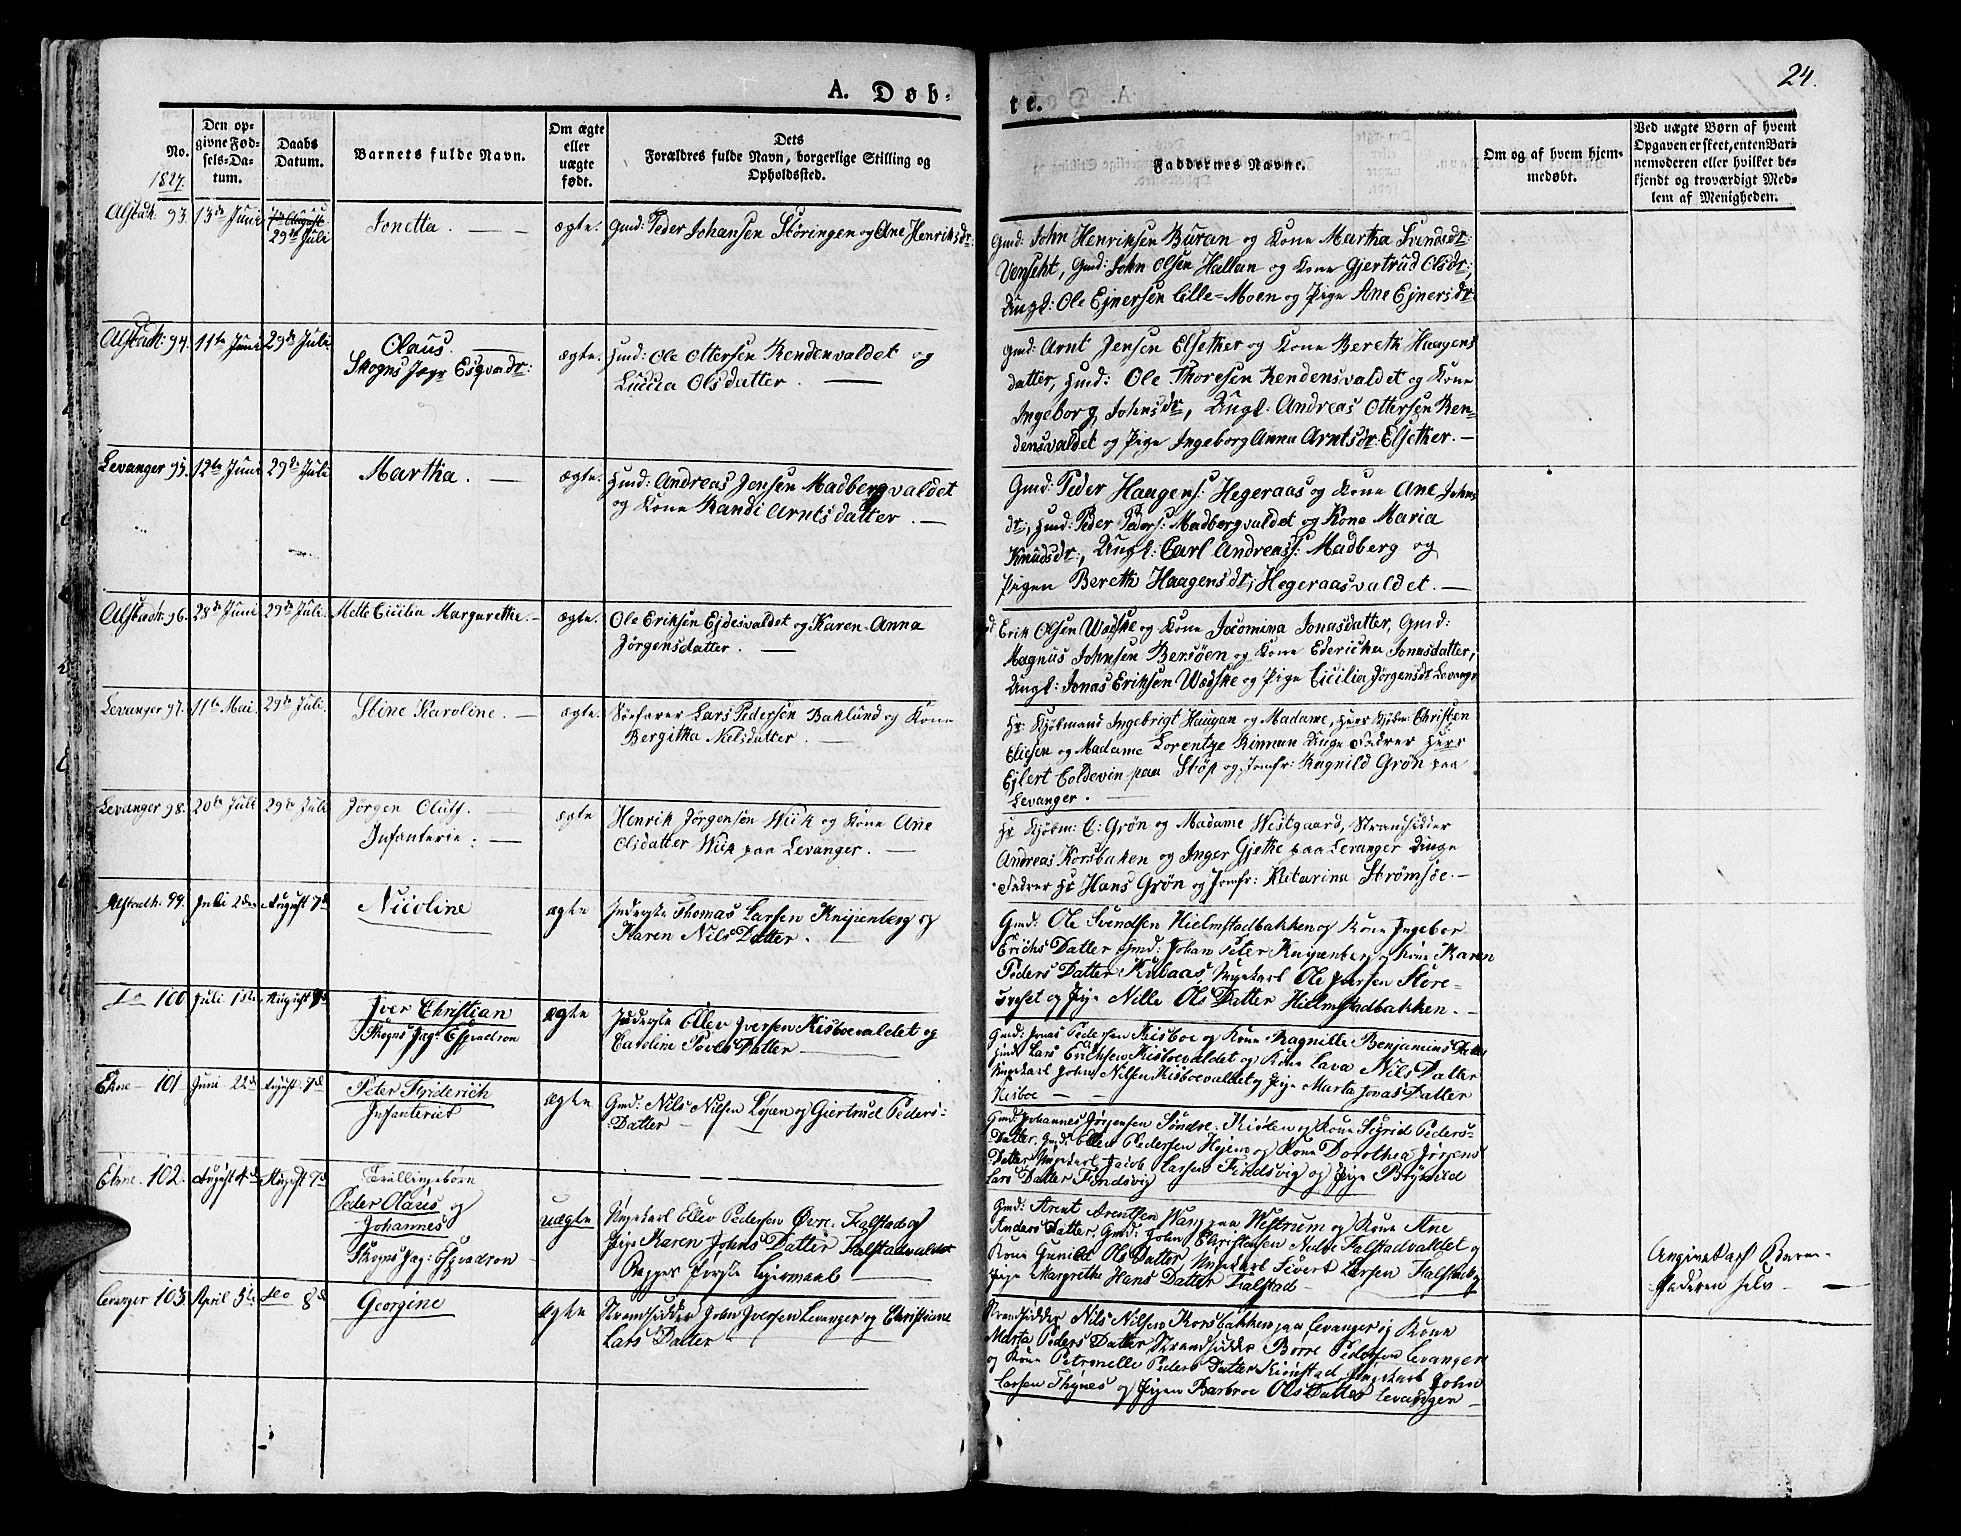 24.
A. Døb-
te.
No.
Den op-
givne Fød-
sels-Da-
tum.
Daabs
Datum.
Barnets fulde Navn.
Om ægte
eller
uægte
født.
Dets
Forældres fulde Navn, borgerlige Stilling og
Opholdssted.
Faddernes Navne.
Om og af hvem hjem-
medøbt.
Ved uægte Børn af hvem
Opgaven er skeet, enten Bar-
nemoderen eller hvilket be-
kjendt og troværdigt Med-
lem af Menigheden.
1827.
Alstadh: 93. 13de Juni
29de Juli
Jonetta.
ægte.
Gmd: Peder Johansen Støringen og Ane Henriksdr:
Gmd: John Henriksen Buran og Kone Martha Svendsdr:
Venseht, Gmd: John Olsen Hallan og Kone Gjertrud Olsdr:,
Ungk: Ole Ejnersen Lille-Moen og Pige Ane Ejnersdr:
Alstadh: 94. 11te Juni 29de Juli.
Olaus.
Skogns Jægr Esqvadr:
ægte.
Huusd: Ole Ottersen Rendenvaldet og
Luccia Olsdatter.
Gmd: Arnt Jensen Elsether og Kone Bereth Haagens
datter, Huusd: Ole Thoresen Rendensvaldet og Kone
Ingeborg Johnsdr, Ungk: Andreas Ottersen Ren-
densvaldet og Pige Ingeborg Anna Arntsdr: Elsether.
Levanger 95. 12te Juni 29de Juli
Martha.
ægte.
Huusd: Andreas Jensen Madbergvaldet
og Kone Randi Arntsdatter.
Gmd: Peder Haagens: Hegeraas og Kone Ane Johns
dr:, Huusd: Peder Peders: Madbergvaldet og Kone Maria
Knudsdr:, Ungk: Carl Andreass: Madberg og
Pigen Bereth Haagensdr: Hegeraasvaldet.
Alstadh: 96. 28de Juni 29de Juli.
Mette Cicilia Margarethe.
ægte.
Ole Eriksen Ejdesvaldet og Karen-Anna
Jørgensdatter.
Erik Olsen Wodske og Kone Jocomina Jonasdatter, Gmd:
Magnus Johnsen Bersøen og Kone Edericka Jonasdatter,
Ungk: Jonas Eriksen Wodske og Pige Cicilia Jørgensdr Levanger
Levanger 97. 11te Mai. 29de Juli.
Stine Karoline.
ægte.
Søefarer Lars Pedersen Baklund og Kone
Bergitha Nielsdatter.
Hr: Kjøbmand Ingebrigt Haugan og Madame, Herr Kjøbm: Christen
Eliesen og Madame Lorentze Rinnan Unge Fadrer Herr
Ejlert Coldevin paa Støp og Jomfr: Ragnild Grøn paa
Levanger.
Levanger 98. 20de Juli 29de Juli
Jörgen Oluff.
Infanterie.
ægte
Henrik Jörgensen Wiik og Kone Ane
Olsdatter Wiik paa Levanger.
Hr Kjøbm: C: Grøn og Madame Westgaard, Strandsidder
Andreas Korsbaken og Inger Gjethe paa Levanger Unge
Fadrer Hr Hans Grøn og Jomfr: Kitarina Strømsöe.
Alstadh. 99. Juli 2den August 7de
Nicoline
ægte
Inderste Thomas Larsen Knipenberg og
Karen Nils Datter.
Gmd: Ole Svendsen Hielmstadbakken og Kone Ingebor
Erichs Datter Gmd: Johan Peter Knipenberg og Kone Karen
Peders Datter Kulaas Ungekarl Ole Jversen Store-
og Pige Nille Ols Datter Hielmstadbakken.
Do 100 Juli 1ste August
Jver Christian
Skogns Jag: Esqvadron
ægte
Inderste Ellev Jversen Kisboevaldet og
Caroline Povels Datter
Gmd: Jonas Pedersen Kisboe og Kone Ragnille Benjamins Datter
Huusd Lars Erichsen Kisboevaldet og Kone Lava Nils Datter
Ungekarl John Nilsen Kisboevaldet og Pige Marta Jonas Datter
Kisboe
Ekne 101 Juni 22de August 7de
Peter Friderich
Infanteriet
ægte
Gmd: Nils Nilsen Löpen og Giertrud Peders-
Datter
Gmd: Johannes Jörgensen Söndre: Kiölen og Kone Sigrid Peders-
Datter, Gmd: Ellev Pedersen Hojem og Kone Dorothea Jörgens
Datter Ungekarl Jacob Larsen Findsvig og Pige Böyhild
Lars Datter Findsvig
Ekne. 102. August 4de August 7de
Tvillingebörn
Peder Olaus og
Johannes
Skogns Jag: Esqvadron
uægte
Ungekarl Ellev Pedersen Övre: Falstad og
Pige Karen Johns Datter Falstadvaldet
Begges Første Leiermaal
Gmd: Arent Arentsen Wang paa Westrum og Kone Ane
Anders Datter, Gmd: John Christensen Nedre Falstadvaldet og
Kone Gunild Ols Datter Ungekarl Sivert Larsen Falstad og
Pige Margrethe Hans Datter Falstad
Angivet af Barne-
Faderen selv
Levanger 103. April 5te do 8de
Georgine
ægte
Strandsidder John Jversen Levanger og Christiane
Lars Datter
Strandsidder Nils Nilsen Korsbakken paa Levanger og Kone
Marta Peders Datter Strandsidder Borre Pedersen Levanger
og Kone Petronelle Peders Datter Ungekarl John
Larsen Thynes og Pigen Barbroe Ols Datter Levanger